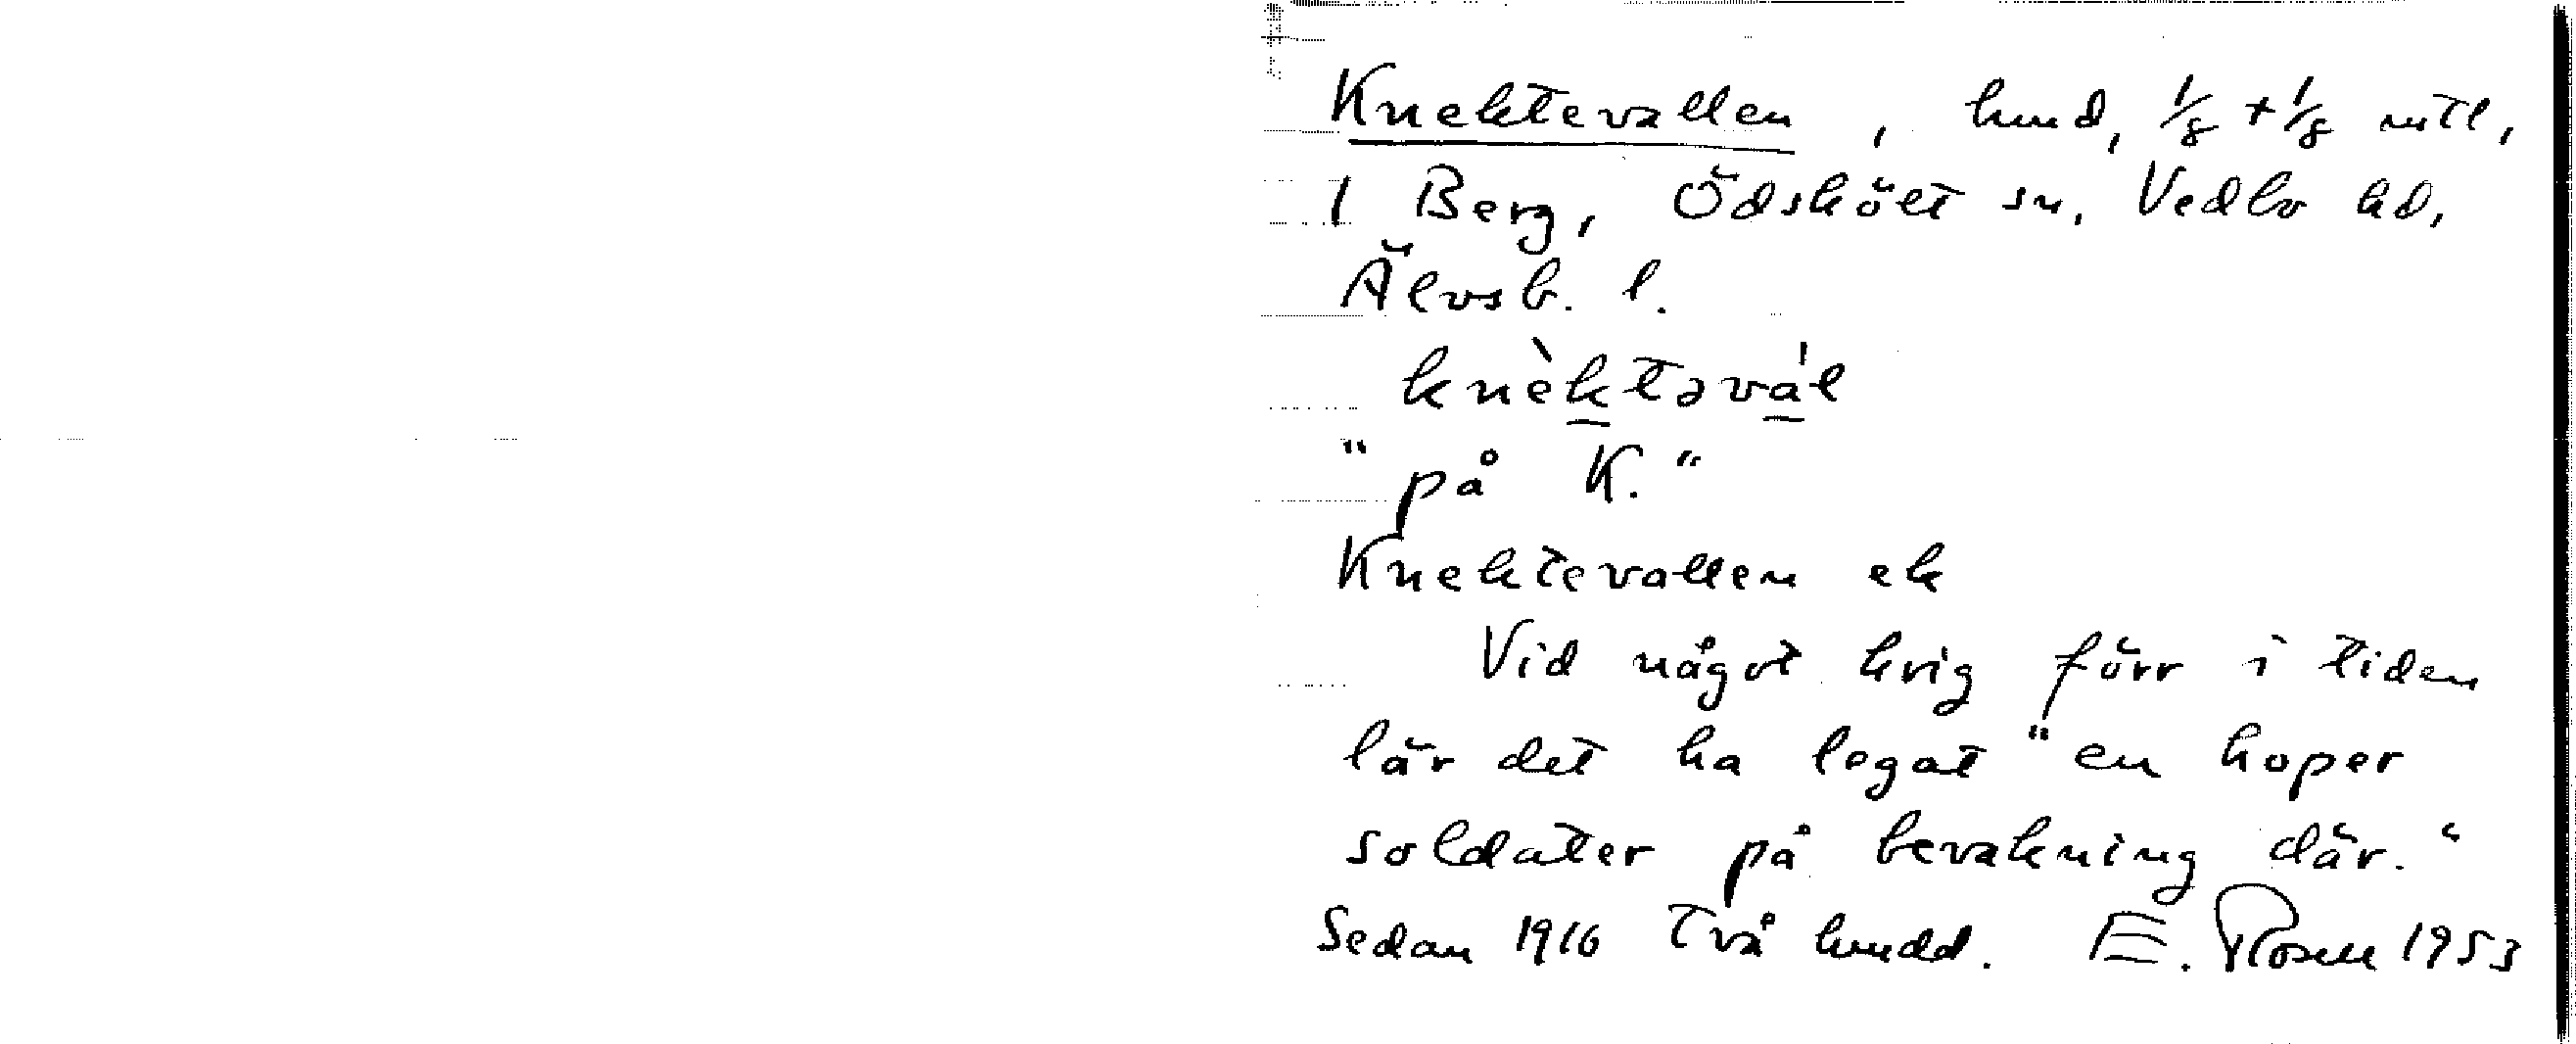 Knektevallen, hmd, 1/8 + 1/8 mtl,
1 Berg, Ödskölt sn, Vedbo hd,
Älvsb. l.
knèktəvál
"på K."
Knektevallen ek
Vid något krig förr i tiden
lär det ha legat "en hoper
soldater på bevakning där."
Sedan 1916 två hmdd. E. Rosen 1953